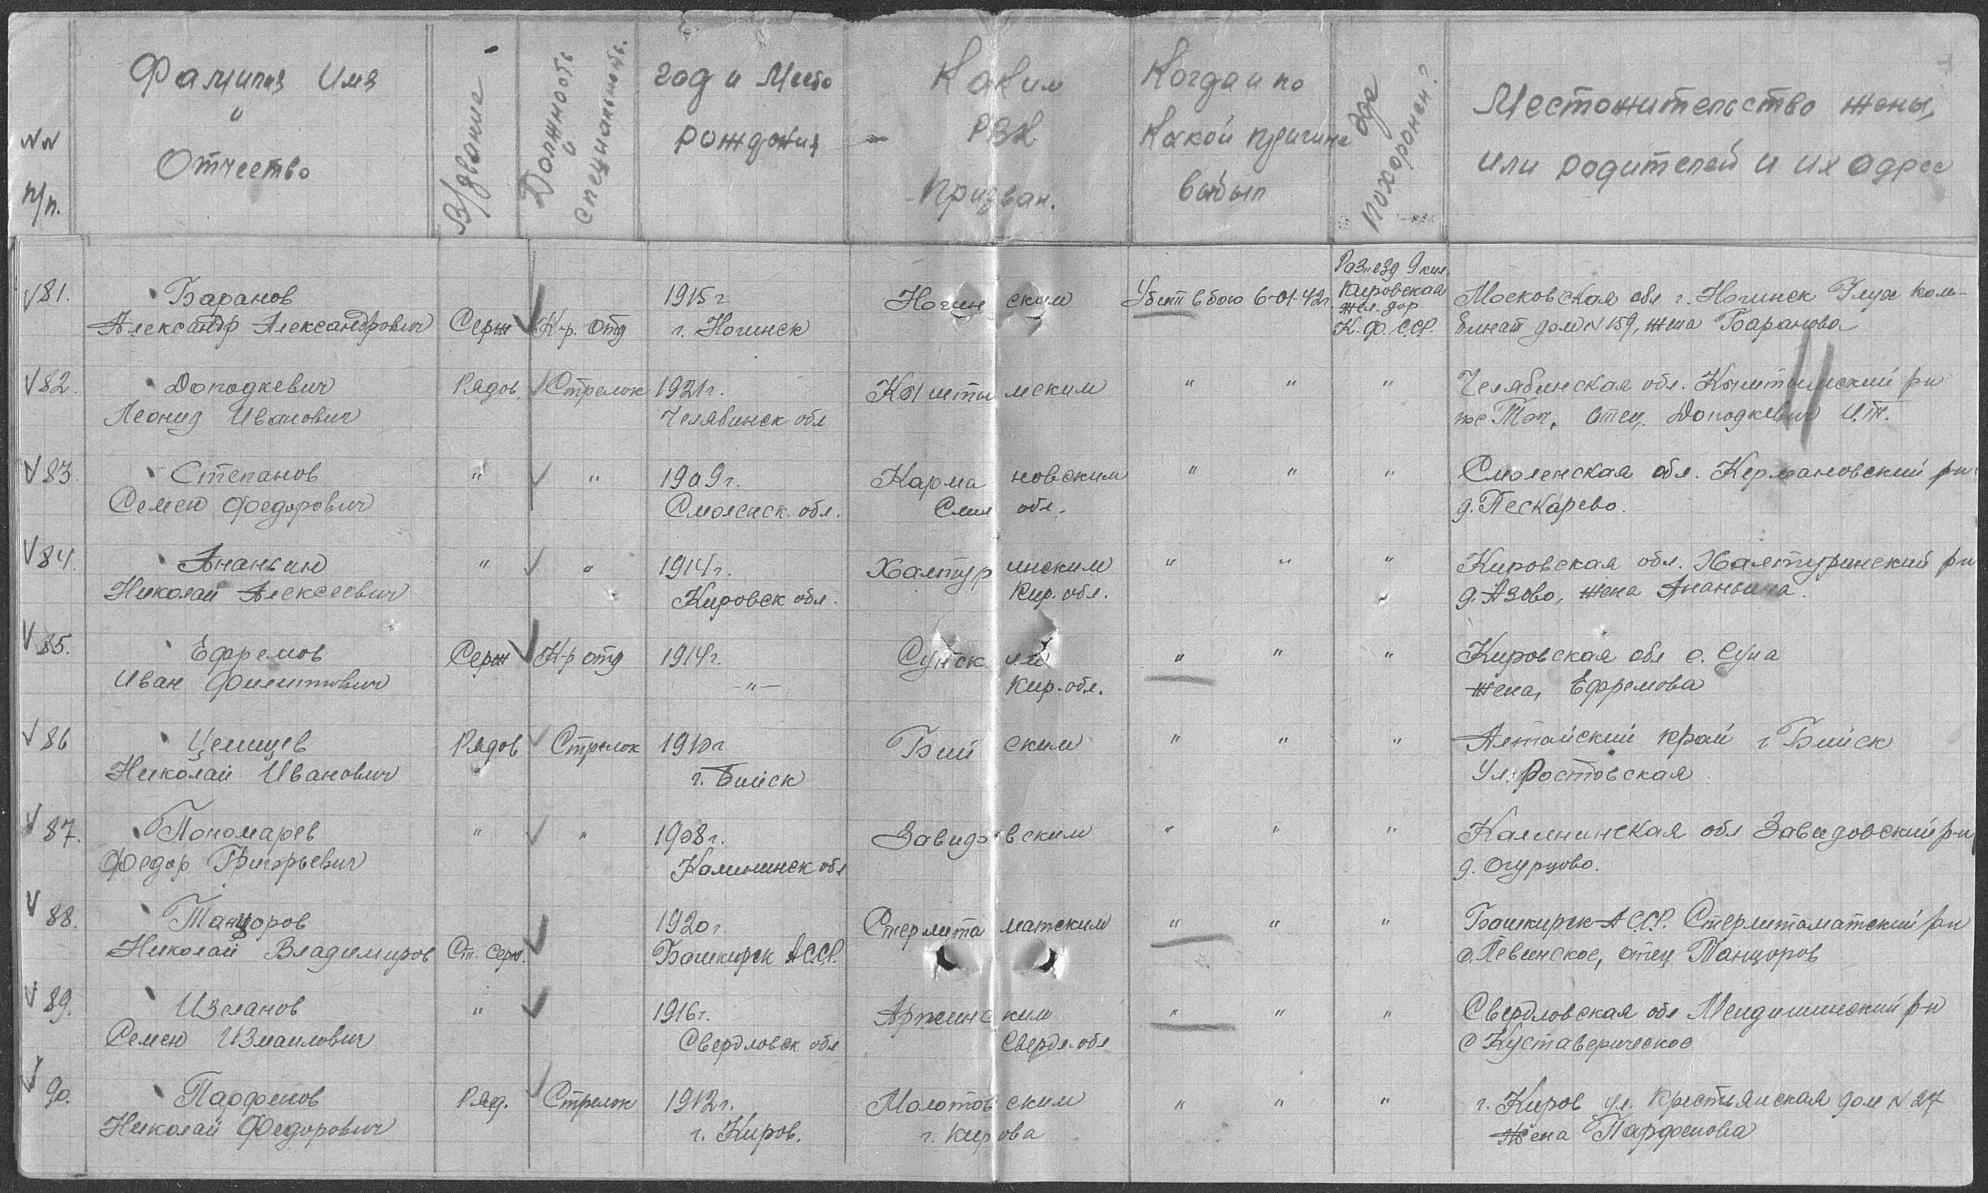 NN п/п.
Фамилия Имя и Отчество
В/звание
Должность и специальность.
Год и Место рождения
Каким РВК призван.
Когда и по какой причине выбыл
Где похоронен?
Местожительство жены, или родителей и их адрес
81. Баранов 1915 г Ногинским Убит в бою 6-01-42г Разъезд 9 км. Кировская жел. дор К.Ф.ССР. Московская обл г. Ногинск Глух ком-
Александр Александрович Серж К-р. отд г. Ногинск бинат дом N 159, жена Баранова
82. Долодкевич Рядов. Стрелок 1921г. Кыштымским " " " Челябинская обл. Кыштымский р-н
Леонид Иванович Челябинск обл пос Тон, отец, Долодкевич И.Т.
83. Степанов " " 1909г. Кармановским " " " Смоленская обл. Кермановский р-н
Семен Федорович Смоленск. обл. Смол обл. д. Пескарево.
84. Ананьин " " 1914г. Халтуринским " " " Кировская обл. Халтуринский р-н
Николай Алексеевич Кировск обл. Кир. обл. д. Азово, жена Ананьина.
85. Ефремов Серж К-р отд 1914г. Сунским " " " Кировская обл с. Суна
Иван Филиппович —"— Кир. обл. жена, Ефремова
86 Цемищев Рядов Стрелок 1910г Бийским " " " Алтайский край г Бийск
Николай Иванович г. Бийск ул. Ростовская
87. Пономарев " " 1908г. Завидовским " " " Калининская обл Завидовский р-н
Федор Григорьевич Калининск обл д. Огурцово.
88. Танцоров 1920г. Стерлитаматским " " " Башкирск АССР. Стерлитаматский р-н
Николай Владимиров Ст. серж. Башкирск АССР. с. Левинское, отец Танцоров
89. Изланов " 1916г. Артинским " " " Свердловская обл
Семен Измаилович Свердловск обл Сверд. обл
90. Парфенов Ряд. Стрелок 1912г. Молотовским " " " г. Киров ул. Крестьянская дом N 27
Николай Федорович г. Киров. г. Кирова жена Парфенова